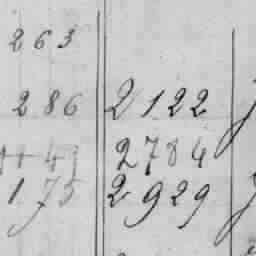 263
286 2122
2784
175 2929